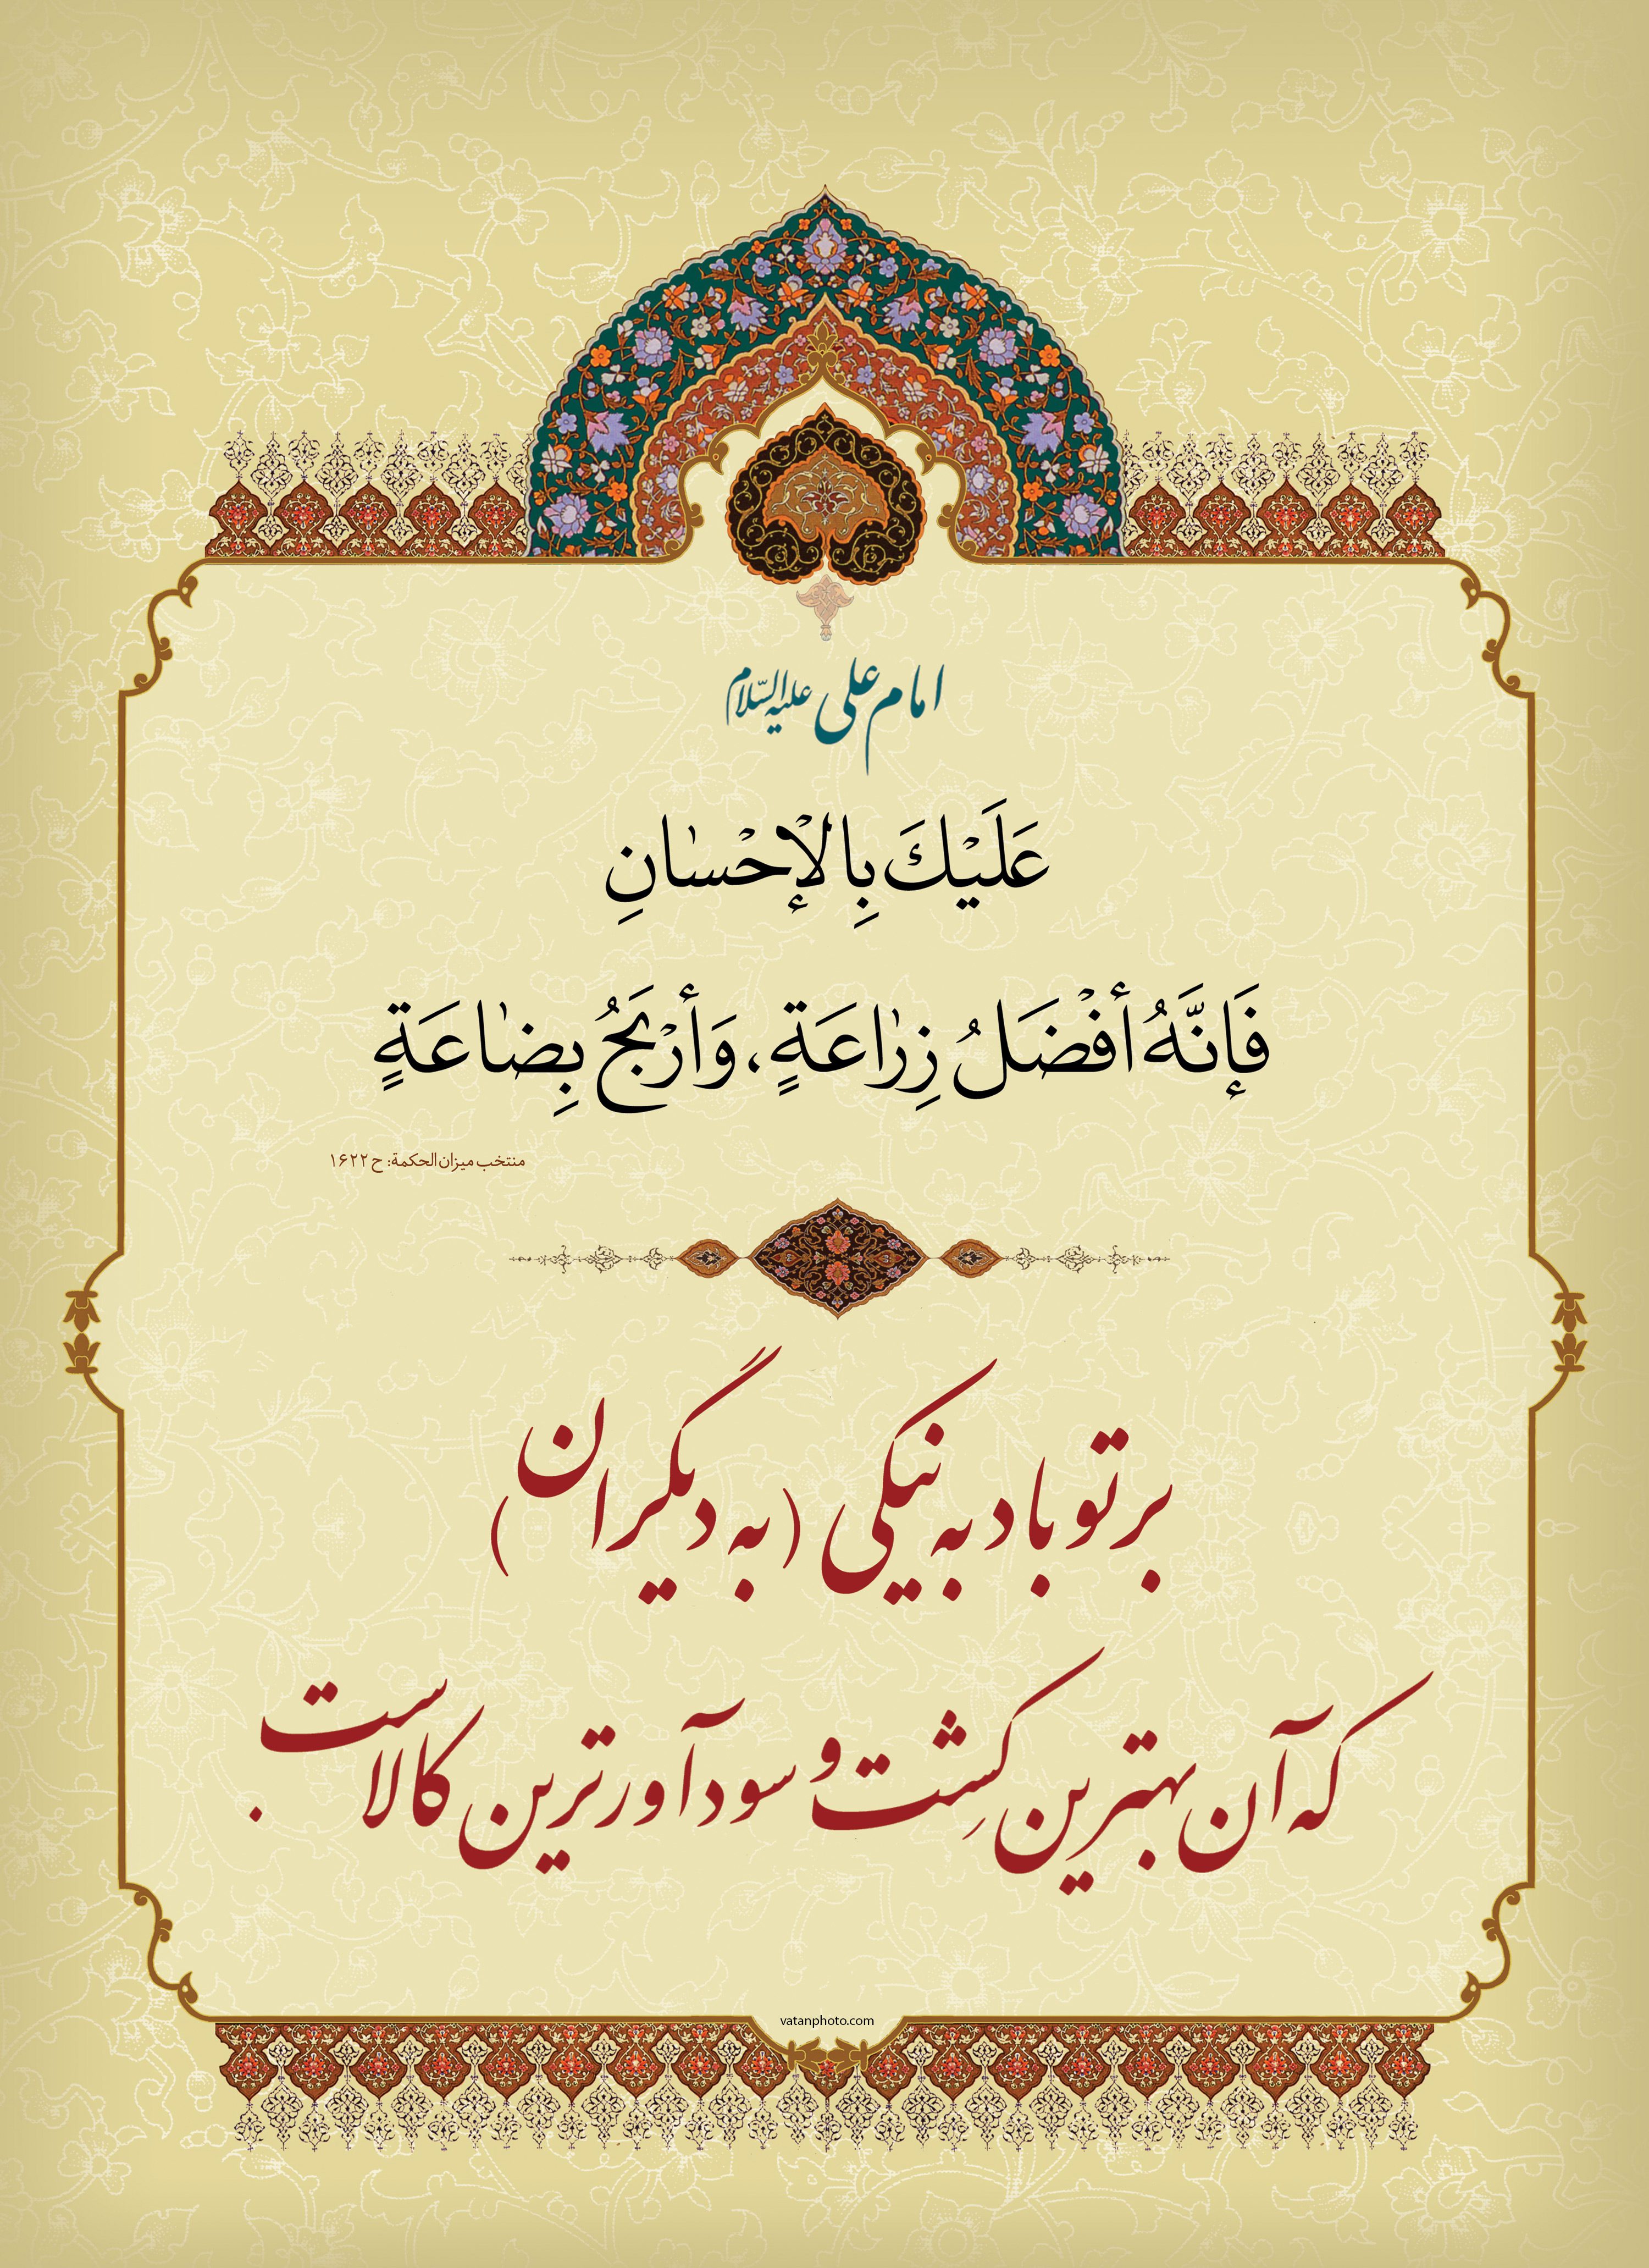 امام علی علیه‌السّلام
عَلَيْكَ بِالْإحْسٰانِ
فَإنَّهُ أفْضَلُ زِرٰاعَةٍ، وَأرْبَحُ بِضٰاعَةٍ
منتخب میزان الحکمة: ح ۱۶۲۲
بر تو باد به نیکی (به دیگران)
که آن بهترین کِشت و سودآورترین کالاست.
vatanphoto.com